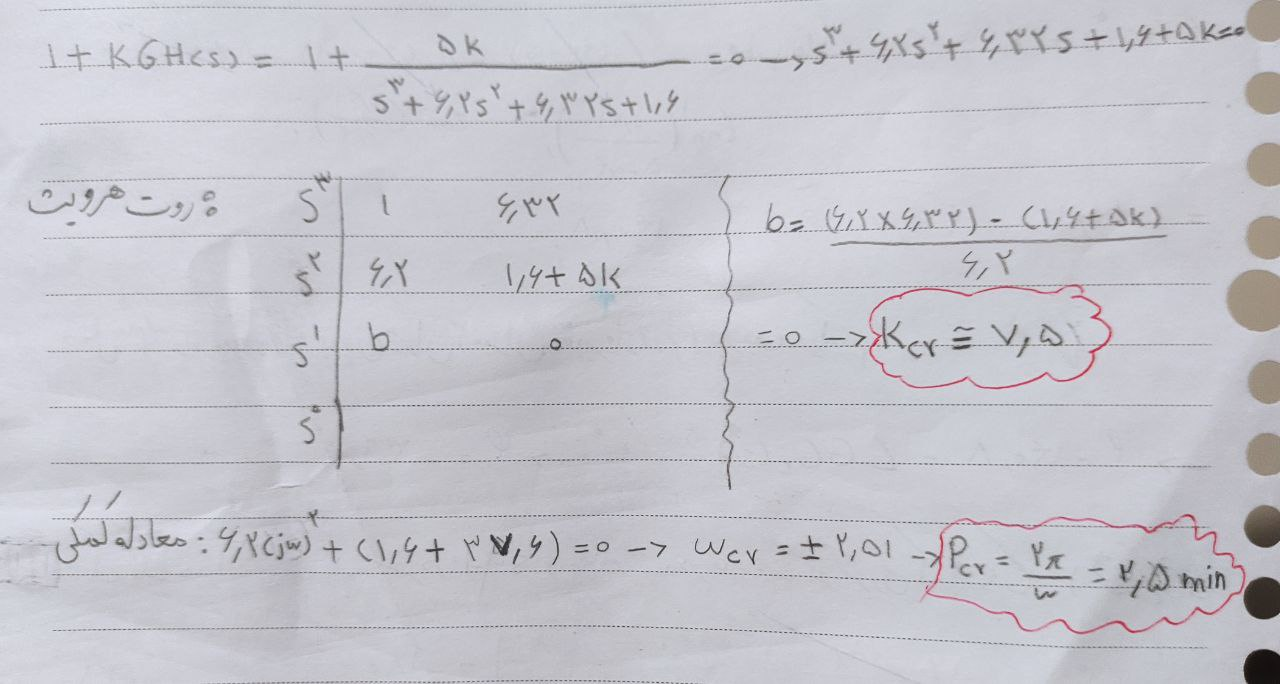 1 + KGH(s) = 1 + ۵K / (s^۳ + ۶,۲s^۲ + ۶,۳۲s + ۱,۶) = ۰ → s^۳ + ۶,۲s^۲ + ۶,۳۲s + ۱,۶ + ۵K = ۰
روت هرویتز :
s^۳ | ۱ ۶,۳۲
s^۲ | ۶,۲ ۱,۶ + ۵K
s^۱ | b ۰
s^۰ |
b = ((۶,۲ × ۶,۳۲) - (۱,۶ + ۵K)) / ۶,۲
= ۰ → Kcr ≅ ۷,۵
معادله کمکی : ۶,۲(jω)^۲ + (۱,۶ + ۳۷,۶) = ۰ → ωcr = ± ۲,۵۱ → Pcr = ۲π / ω = ۲,۵ min